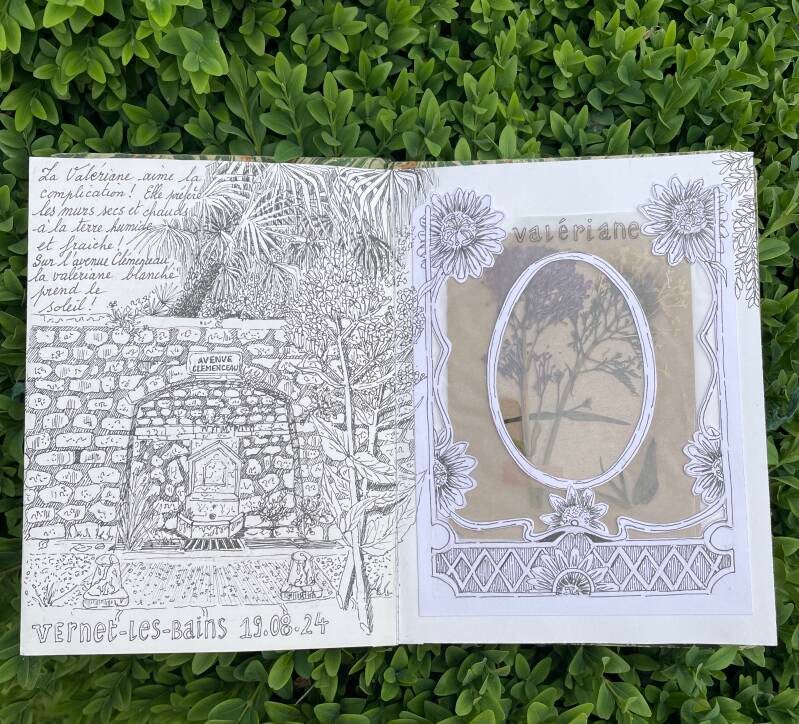 La Valériane aime la
complication! Elle préfère
les murs secs et chauds
a la terre humide
et fraiche!
Sur l'avenue Clémenceau,
la valériane blanche
prend le
soleil!
AVENUE
CLEMENCEAU
Vernet-Les-Bains 19.08.24
valériane